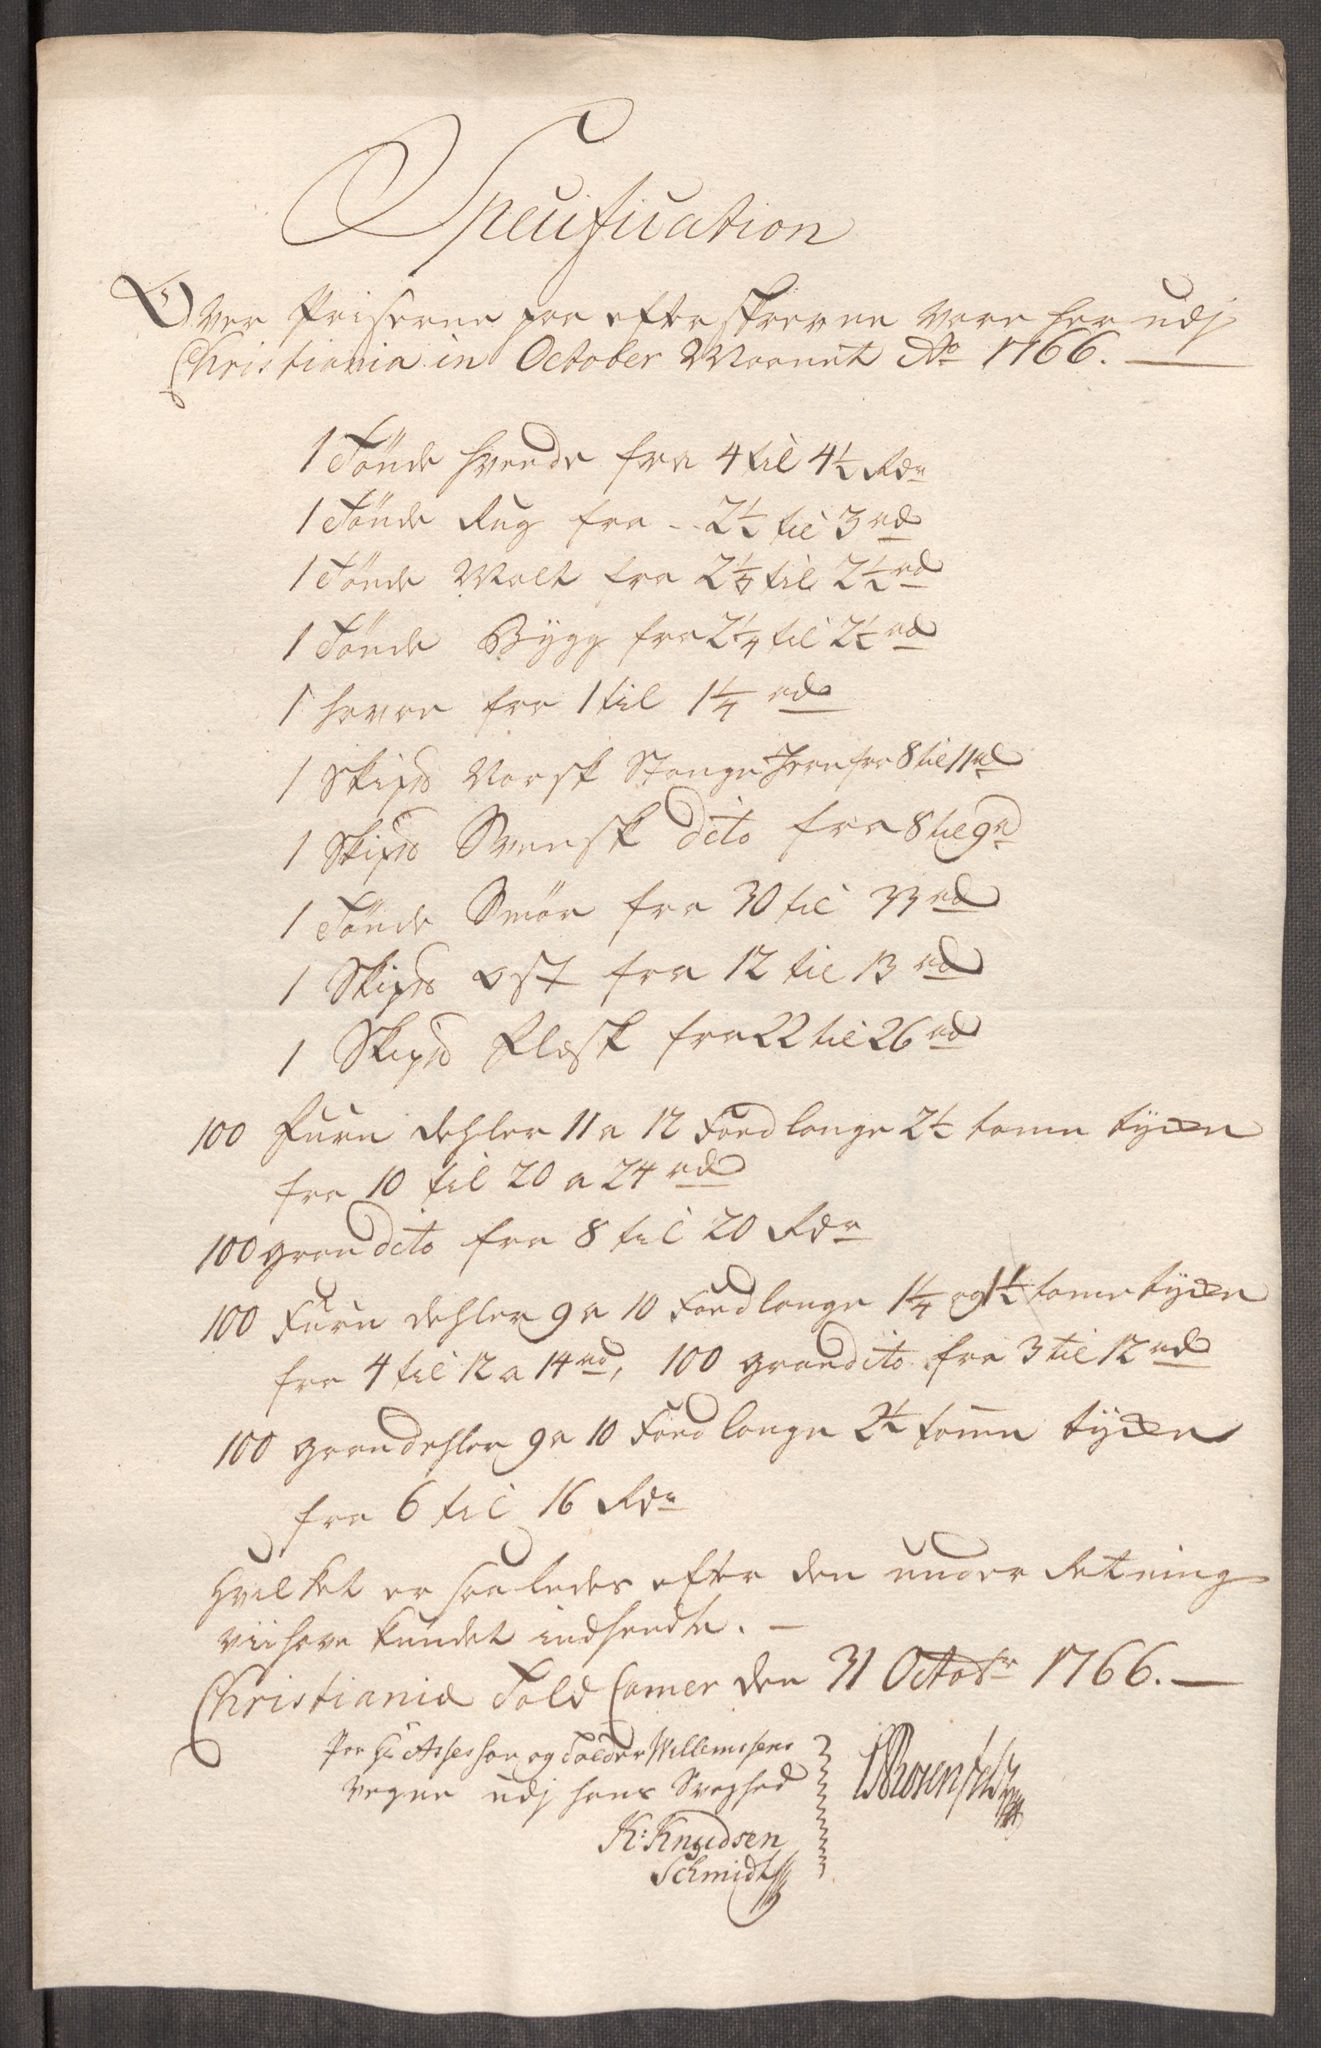 Specification
Over Priserne paa efterskrevne Vare her udj
Christiania in October Maanet Ao 1766. —
1 Tönde Hvede fra 4 til 4½ Rdr
1 Tönde Rug fra - - 2½ til 3 rd
1 Tönde Malt fra 2⅛ til 2½ rd
1 Tönde Bÿgg fra 2¼ til 2½ rd
1 Havre fra 1 til 1¼ rd
1 Skipd Norsk Stange Jern fra 8 til 11 rd
1 Skipd Svensk dito fra 8 til 9 rd
1 Tönde Smör fra 30 til 33 rd
1 Skipd Ost fra 12 til 13 rd
1 Skipd Flesk fra 22 til 26 rd
100 Furu Dehler 11 a 12 Foed lange 2½ tomme tÿcke
fra 10 til 20 a 24 rd
100 gran dito fra 8 til 20 Rdr
100 Furu Dehler 9 a 10 Foed lange 1¼ og 1½ tome tÿcke
fra 4 til 12 a 14 rd, 100 gran dito fra 3 til 12 rd
100 gran dehler 9 a 10 Foed lange 2½ tomme tÿcke
fra 6 til 16 Rdr
Hvilket er saaledes efter den underRetning
vii have kundet indhendte. —
Christiania Told Camer den 31 Octobr 1766. —
Paa Hr Assessor og Tolder Willemsens
Vegne udj hans Svaghed
K: Knudsen
Schmidt
Rosenfeldt